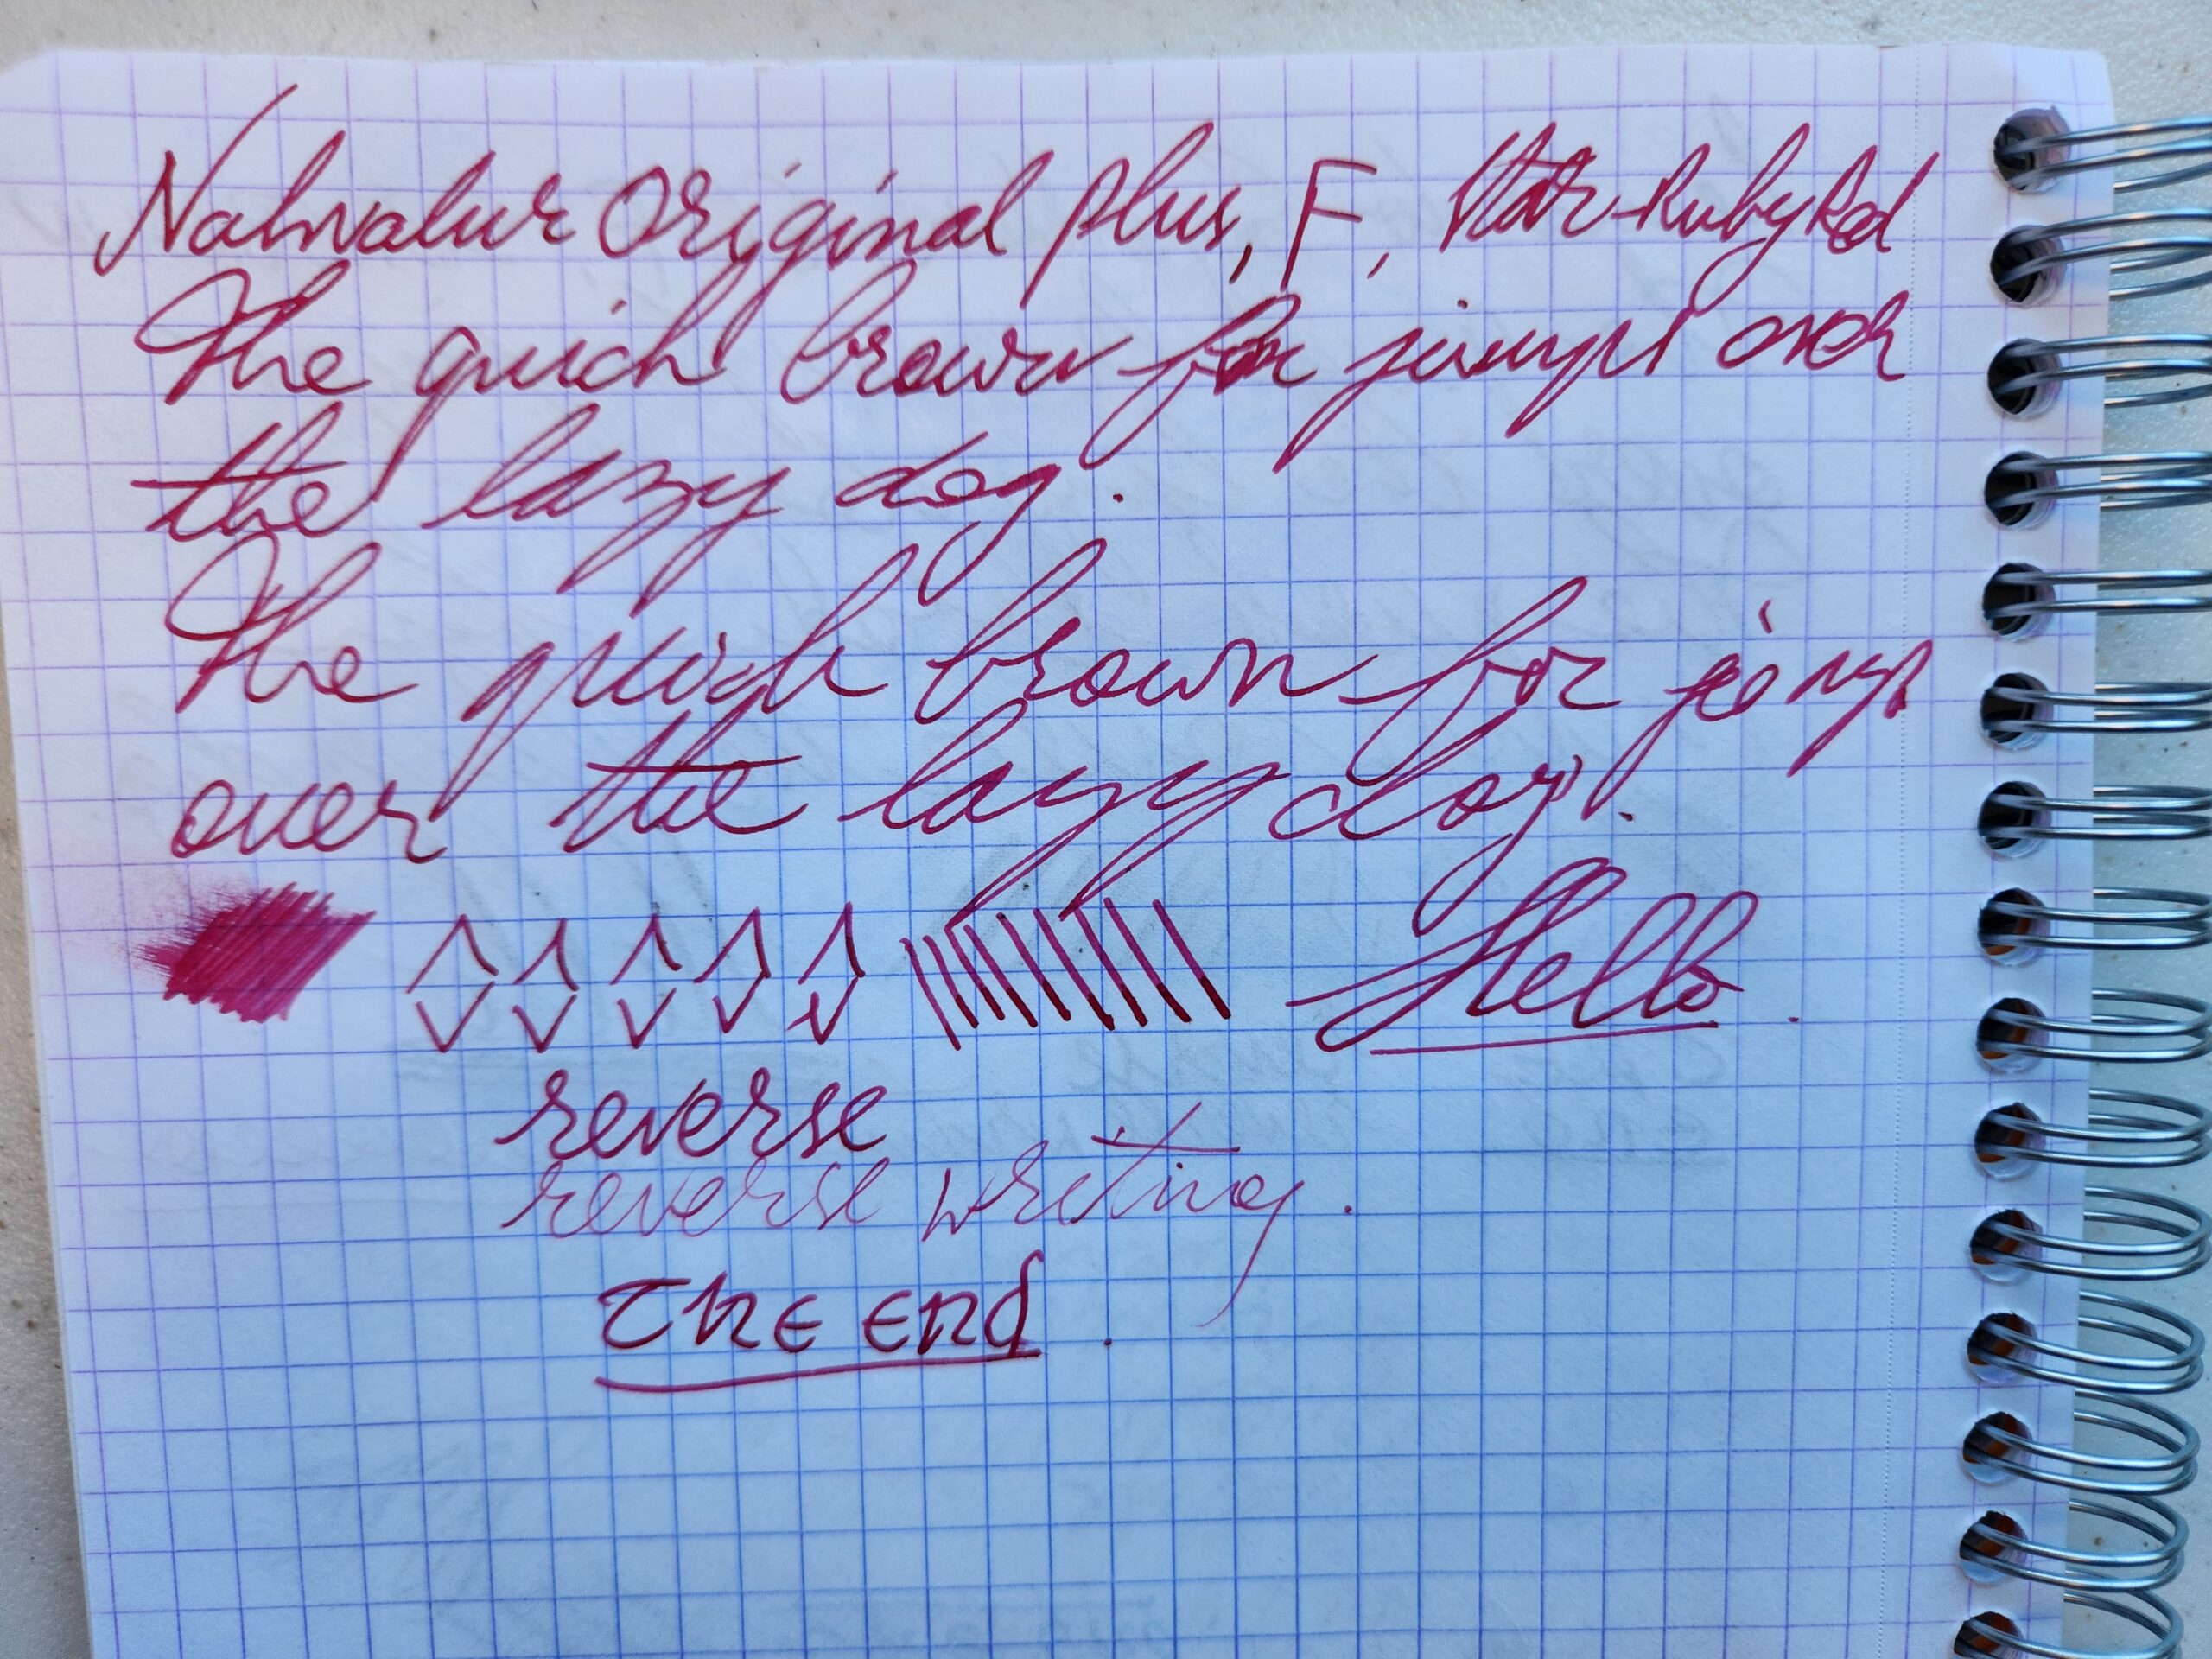 Nahvalur Original Plus, F, Star Ruby Red
The quick brown fox jumps over
the lazy dog.
The quick brown fox jumps
over the lazy dog.
Hello.
reverse
reverse writing.
The End.